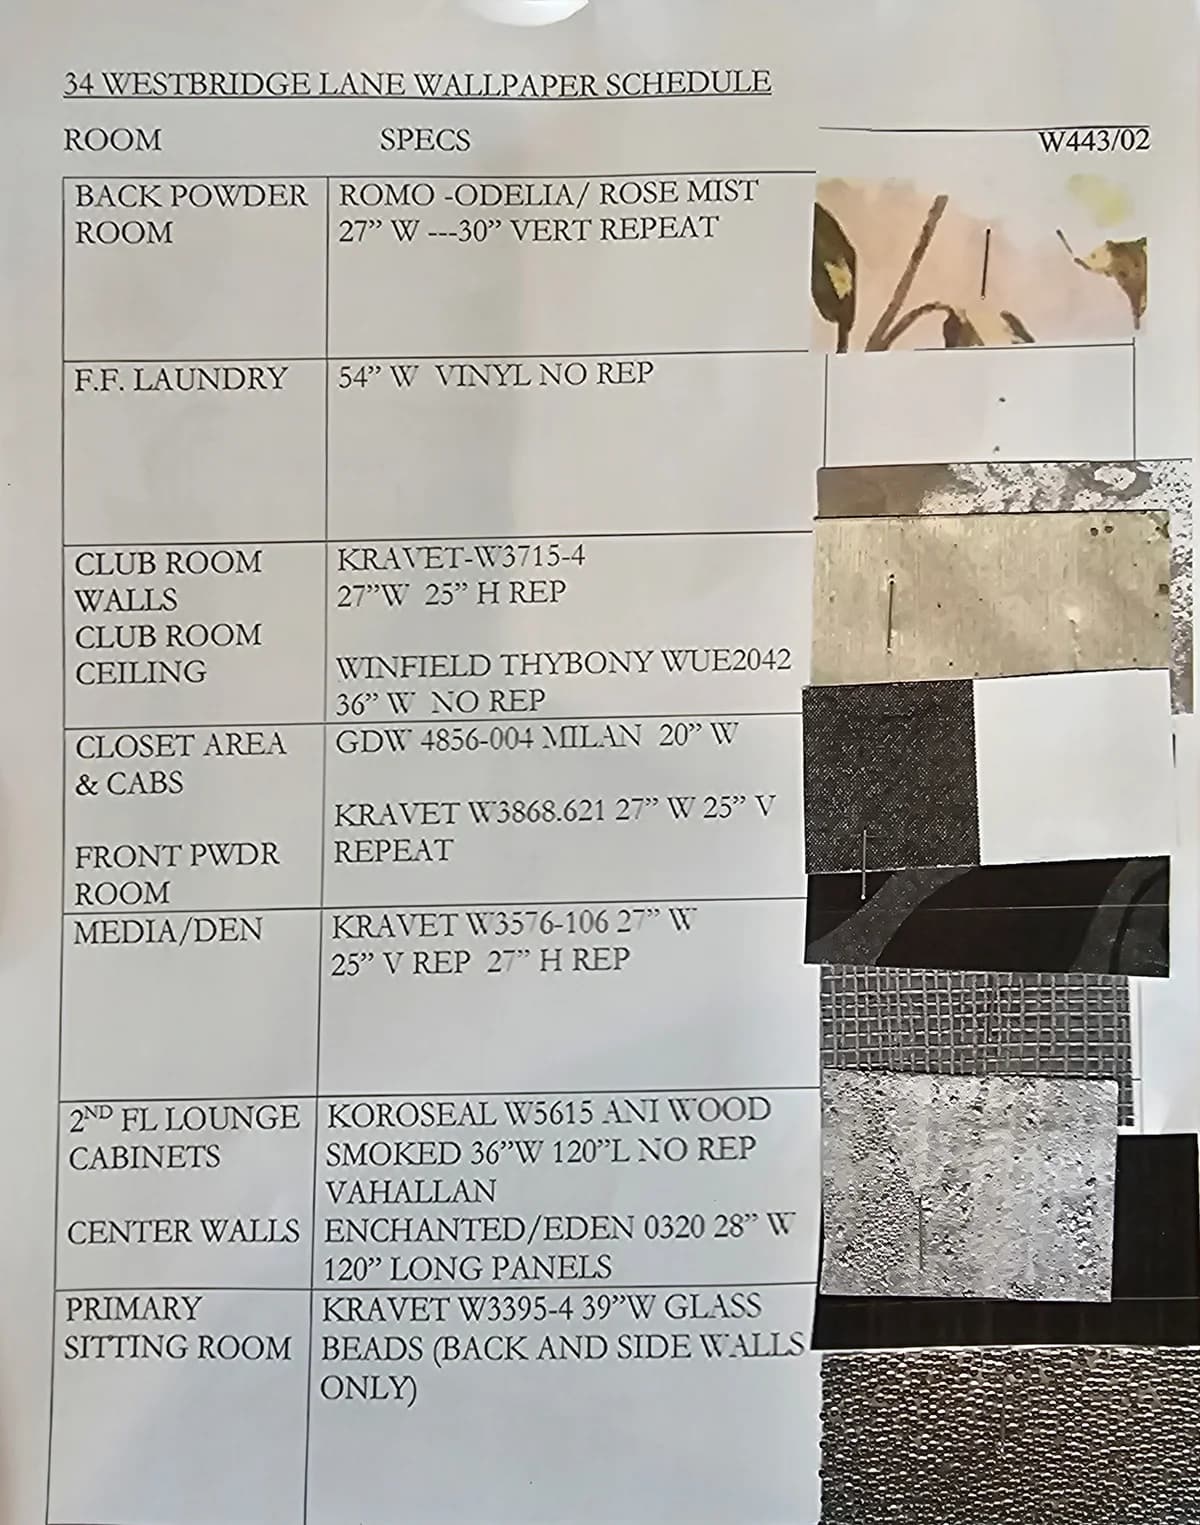 34 WESTBRIDGE LANE WALLPAPER SCHEDULE
ROOM SPECS
W443/02
BACK POWDER
ROOM
ROMO -ODELIA/ ROSE MIST
27” W ---30” VERT REPEAT
F.F. LAUNDRY
54” W VINYL NO REP
CLUB ROOM
WALLS
CLUB ROOM
CEILING
KRAVET-W3715-4
27”W 25” H REP
WINFIELD THYBONY WUE2042
36” W NO REP
CLOSET AREA
& CABS
FRONT PWDR
ROOM
GDW 4856-004 MILAN 20” W
KRAVET W3868.621 27” W 25” V
REPEAT
MEDIA/DEN
KRAVET W3576-106 27” W
25” V REP 27” H REP
2ND FL LOUNGE
CABINETS
CENTER WALLS
KOROSEAL W5615 ANI WOOD
SMOKED 36”W 120”L NO REP
VAHALLAN
ENCHANTED/EDEN 0320 28” W
120” LONG PANELS
PRIMARY
SITTING ROOM
KRAVET W3395-4 39”W GLASS
BEADS (BACK AND SIDE WALLS
ONLY)